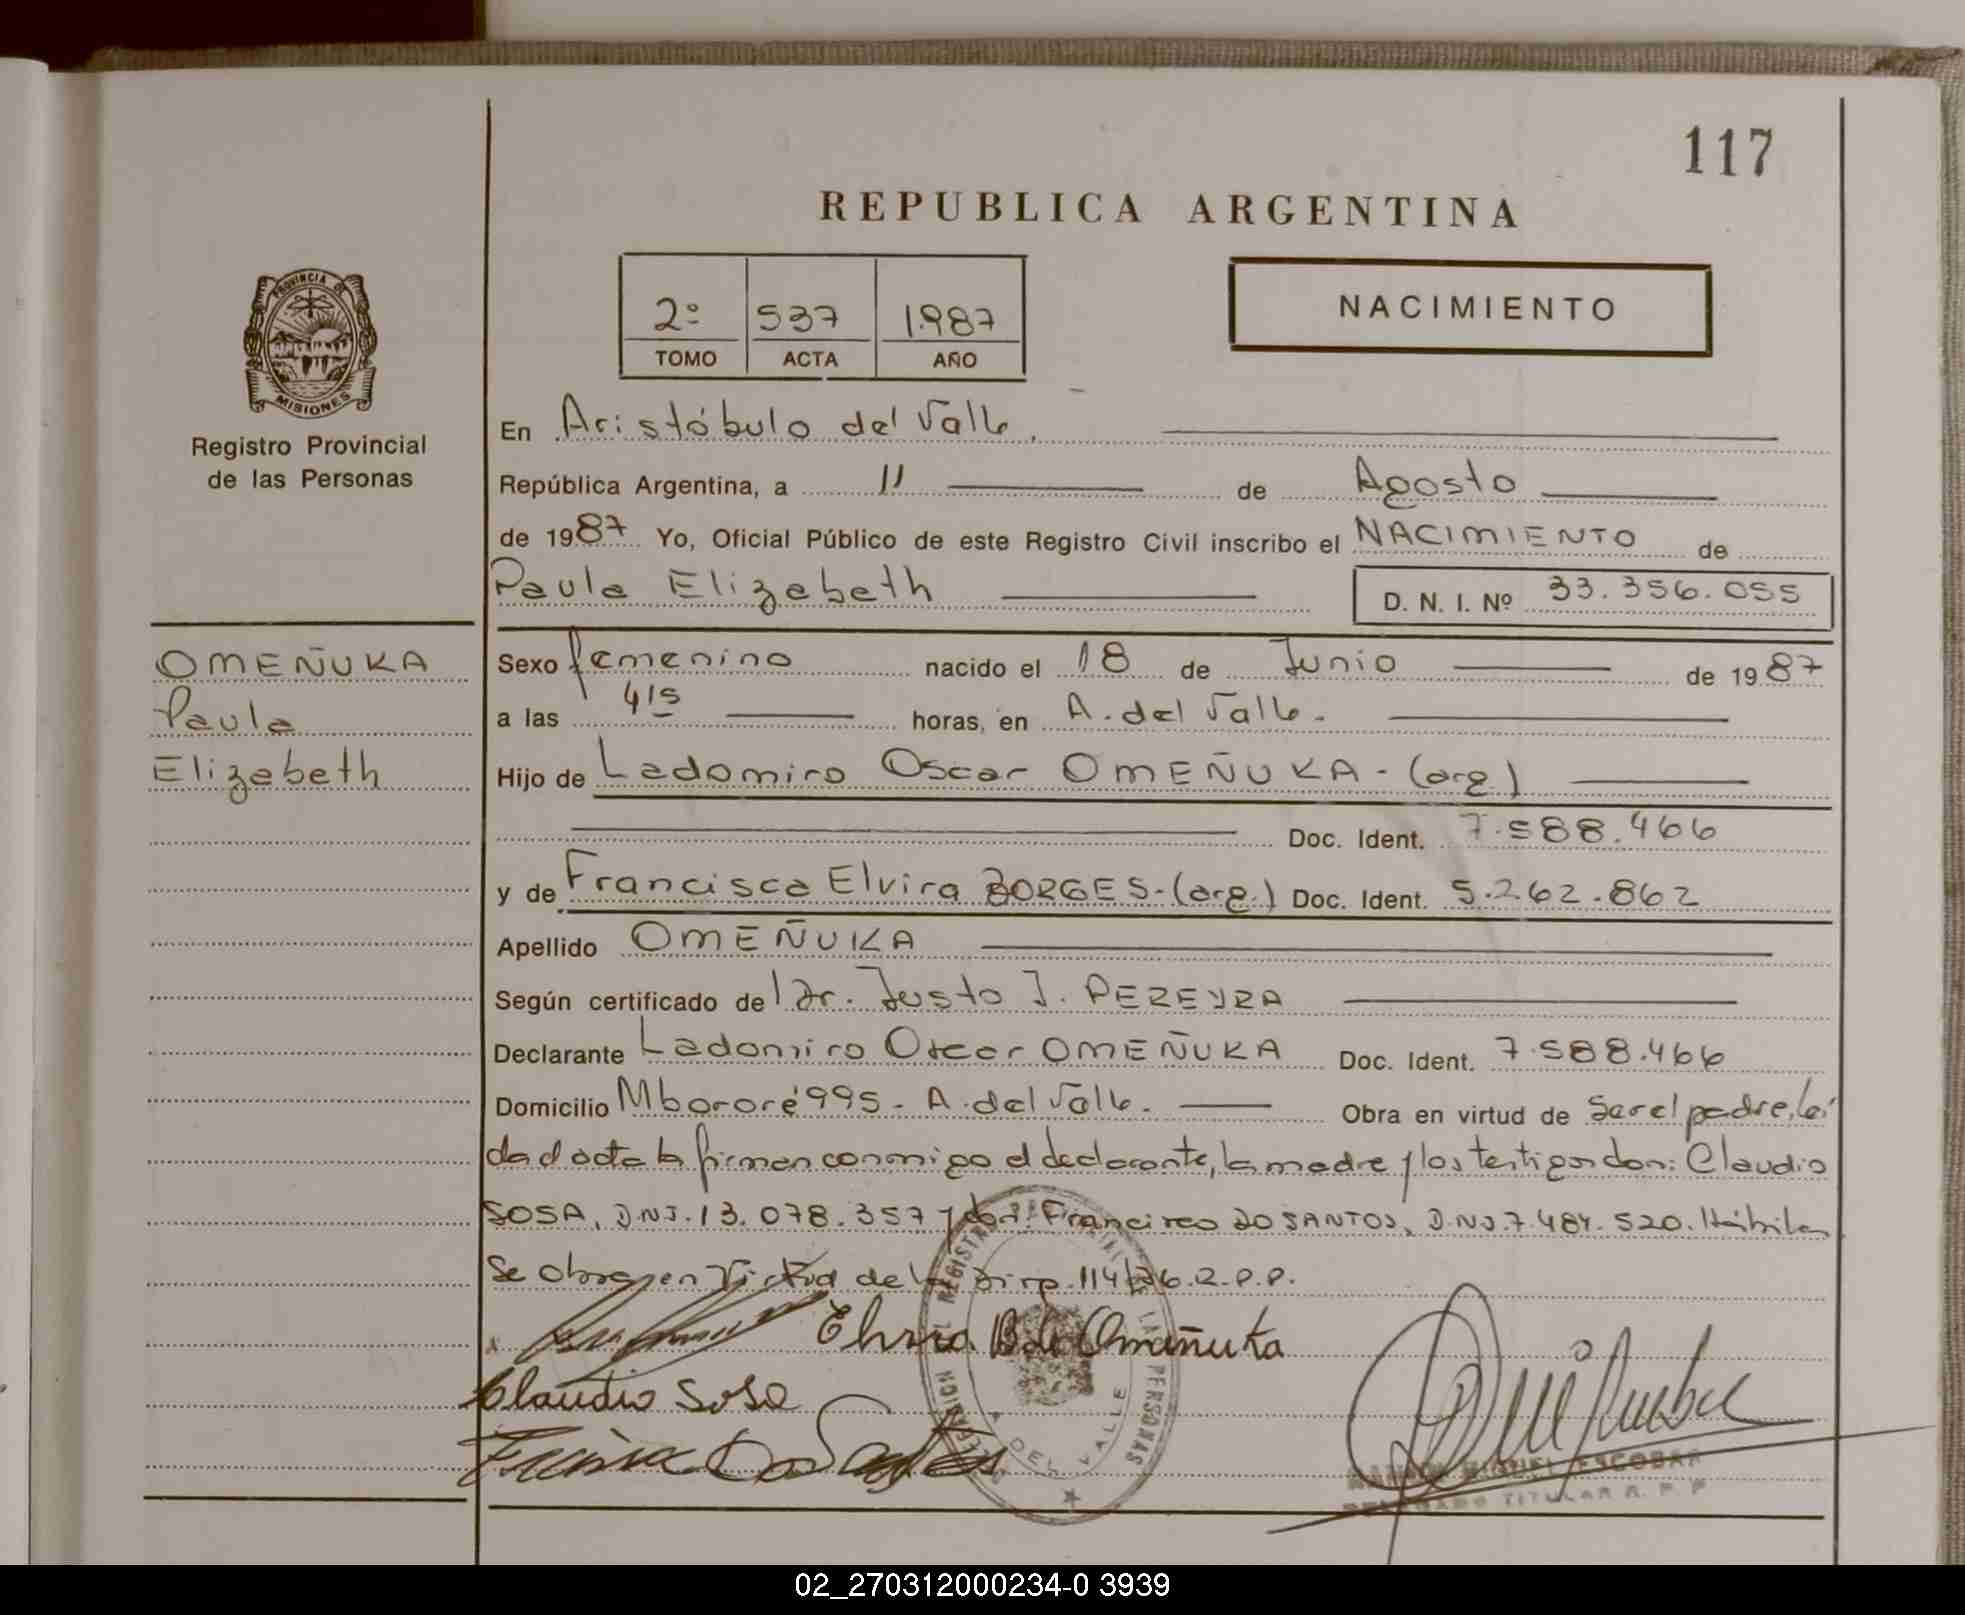 117
REPUBLICA ARGENTINA
2º 537 1.987
TOMO ACTA AÑO
NACIMIENTO
PROVINCIA DE
MISIONES
Registro Provincial
de las Personas
En Aristóbulo del Valle,
República Argentina, a 11 de Agosto
de 1987 Yo, Oficial Público de este Registro Civil inscribo el NACIMIENTO de
Paula Elizabeth D. N. I. Nº 33.356.055
OMEÑUKA
Paula
Elizabeth
Sexo femenino nacido el 18 de Junio de 1987
a las 4 15 horas, en A. del Valle.
Hijo de Ladomiro Oscar OMEÑUKA - (arg.)
Doc. Ident. 7.588.466
y de Francisca Elvira BORGES - (arg.) Doc. Ident. 5.262.862
Apellido OMEÑUKA
Según certificado de l Dr. Justo J. PEREYRA
Declarante Ladomiro Oscar OMEÑUKA Doc. Ident. 7.588.466
Domicilio Mbororé 995 - A. del Valle. Obra en virtud de ser el padre, leí
da el acta la firman conmigo el declarante, la madre y los testigos don: Claudio
SOSA, DNI. 13.078.357 y don: Francisco DO SANTOS, D.N.I. 7.484.520. Hábiles
Se obra en Virtud de la Disp. 114/86. R.P.P.
Elvira B de Omeñuka
Claudio Sosa
DEL VALLE
LAS PERSONAS
RAMON MIGUEL ESCOBAR
DELEGADO TITULAR R. P. P
02_270312000234-0 3939